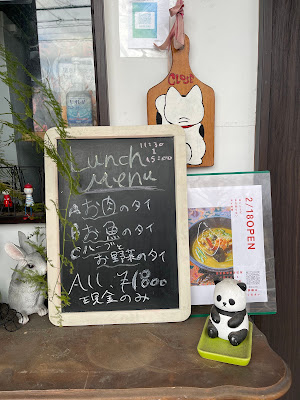 CLOSE
Lunch
Menu
11:30
15:00
Aお肉のタイ
Bお魚のタイ
Cハーブと
お野菜のタイ
All. ¥1800
現金のみ
2/18OPEN